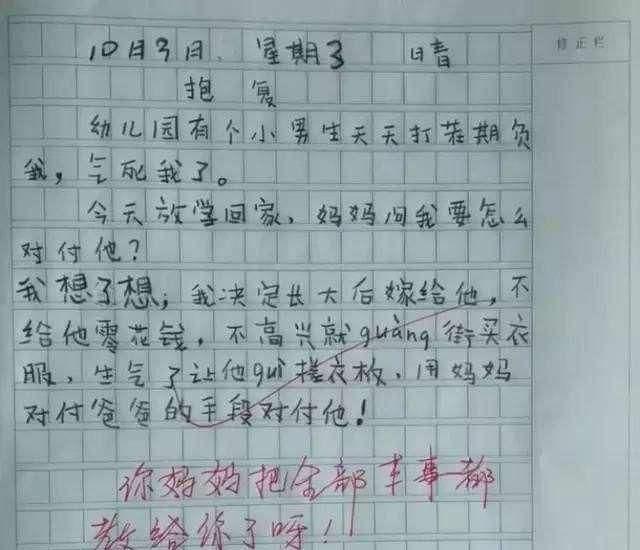 10月3日 星期3 晴
修正栏
抱复
幼儿园有个小男生天天打茬期负
我，气死我了。
今天放学回家，妈妈问我要怎么
对付他？
我想了想；我决定长大后嫁给他，不
给他零花钱，不高兴就guàng街买衣
服、生气了让他guì搓衣板，用妈妈
对付爸爸的手段对付他！
你妈妈把全部本事都
教给你了呀！